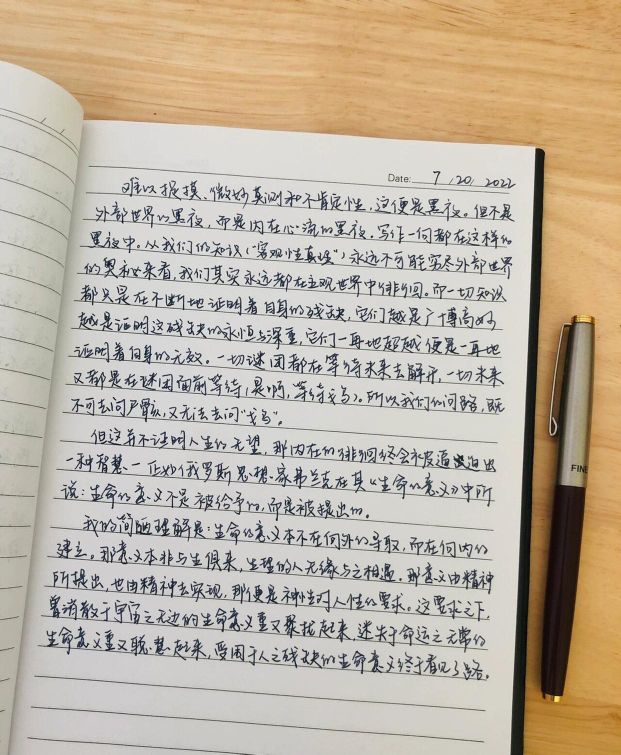 Date: 7 / 20 / 2022
难以捉摸、微妙莫测和不肯定性,这便是黑夜。但不是
外部世界的黑夜,而是内在心流的黑夜。写作一向都在这样的
黑夜中。从我们的知识(“客观性真理”)永远不可能穷尽外部世界
的奥秘来看,我们其实永远都在主观世界中徘徊。而一切知识
都只是在不断地证明着自身的残缺,它们越是广博高妙
越是证明这残缺的永恒与深重,它们一再地超越便是一再地
证明着自身的无效。一切谜团都在等待未来去解开,一切未来
又都是在谜团面前等待(是啊,等待戈多)。所以我们的问路,既
不可去问尸骸,又无法去问“戈多”。
但这并不证明人生的无望。那内在的徘徊终会被逼迫出
一种智慧——正如俄罗斯思想家弗兰克在其《生命的意义》中所
说:生命的意义不是被给予的,而是被提出的。
我的简陋理解是:生命的意义本不在向外的寻取,而在向内的
建立。那意义本非与生俱来,生理的人无缘与之相遇。那意义由精神
所提出,也由精神去实现,那便是神性对人性的要求。这要求之下,
曾消散于宇宙之无边的生命意义重又聚拢起来,迷失于命运之无常的
生命意义重又聪慧起来,受困于人之残缺的生命意义终于看见了路。
FINE